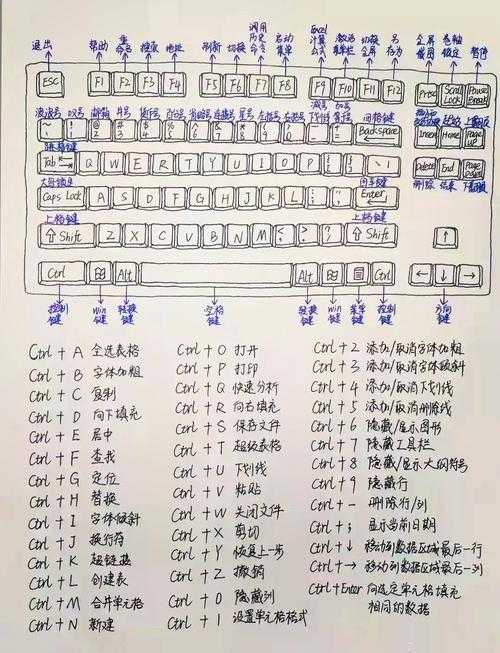 退出 帮助 重命名 搜索 地址 刷新 切换 调用历史命令 启动菜单 Excel计算公式 激活菜单栏 切换全屏 另存为 全屏截图 卷轴锁定 暂停
ESC F1 F2 F3 F4 F5 F6 F7 F8 F9 F10 F11 F12 Prtsc Scroll Lock Pause Break
波浪号 叹号 邮箱 井号 货币号 百分号 连接号 星号 左括号 右括号 下划线 减号 加号 等号 退格键
~ ! @ # $ % ^ & * ( ) _ + Backspace Home Page up
` 1 2 3 4 5 6 7 8 9 0 - =
跳格键
Tab Q W E R T Y U I O P [ ] \ Delete End Page down
删除 结束 下翻页
大写锁定 回车键
Caps Lock A S D F G H J K L Enter
上档键 上档键
Shift Z X C V B N M < > ? Shift ↑
Ctrl Alt Alt Ctrl ← ↓ →
控制键 win键 转换键 空格键 转换键 win键 菜单键 控制键 方向键
Ctrl + A 全选表格
Ctrl + B 字体加粗
Ctrl + C 复制
Ctrl + D 向下填充
Ctrl + E 居中
Ctrl + F 查找
Ctrl + G 定位
Ctrl + H 替换
Ctrl + I 字体倾斜
Ctrl + J 换行符
Ctrl + K 超链接
Ctrl + L 创建表
Ctrl + M 合并单元格
Ctrl + N 新建
Ctrl + O 打开
Ctrl + P 打印
Ctrl + Q 快速分析
Ctrl + R 向右填充
Ctrl + S 保存文件
Ctrl + T 超级表格
Ctrl + U 下划线
Ctrl + V 粘贴
Ctrl + W 关闭文件
Ctrl + X 剪切
Ctrl + Y 恢复上一步
Ctrl + Z 撤销
Ctrl + 0 隐藏列
Ctrl + 1 设置单元格格式
Ctrl + 2 添加/取消字体加粗
Ctrl + 3 添加/取消字体倾斜
Ctrl + 4 添加/取消下划线
Ctrl + 5 添加/取消删除线
Ctrl + 6 隐藏/显示图形
Ctrl + 7 隐藏工具栏
Ctrl + 8 隐藏/显示大纲符号
Ctrl + 9 隐藏行
Ctrl + - 删除行/列
Ctrl + ; 显示当前日期
Ctrl + ↓ 移动到数据区域最后一行
Ctrl + → 移动到数据区域最后一列
Ctrl+Enter 向选定单元格填充
相同的数据